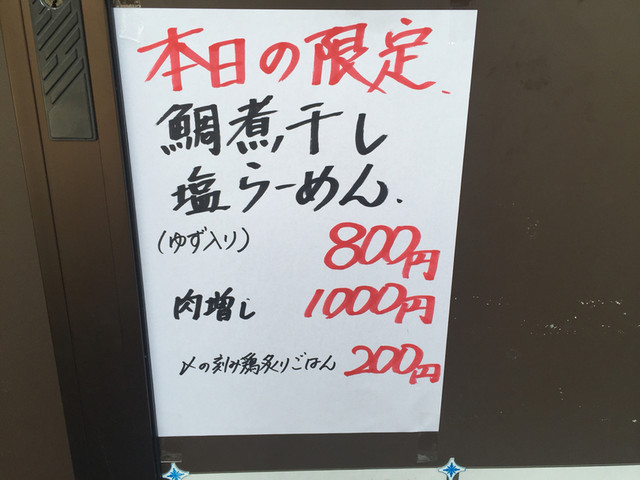 本日の限定.
鯛煮干し
塩らーめん.
(ゆず入り) 800円
肉増し 1000円
〆の刻み鶏炙りごはん 200円